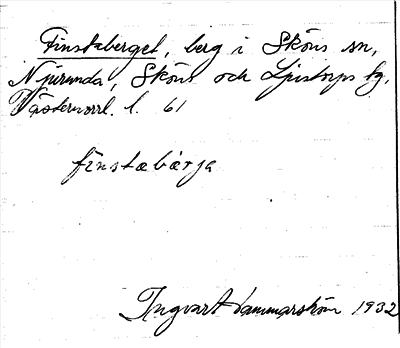 Finstaberget, berg i Sköns sn,
Njurunda, Sköns och Ljustorps tg.
Västernorrl. l. 61
finstabärja
Ingvart Hammarström 1932